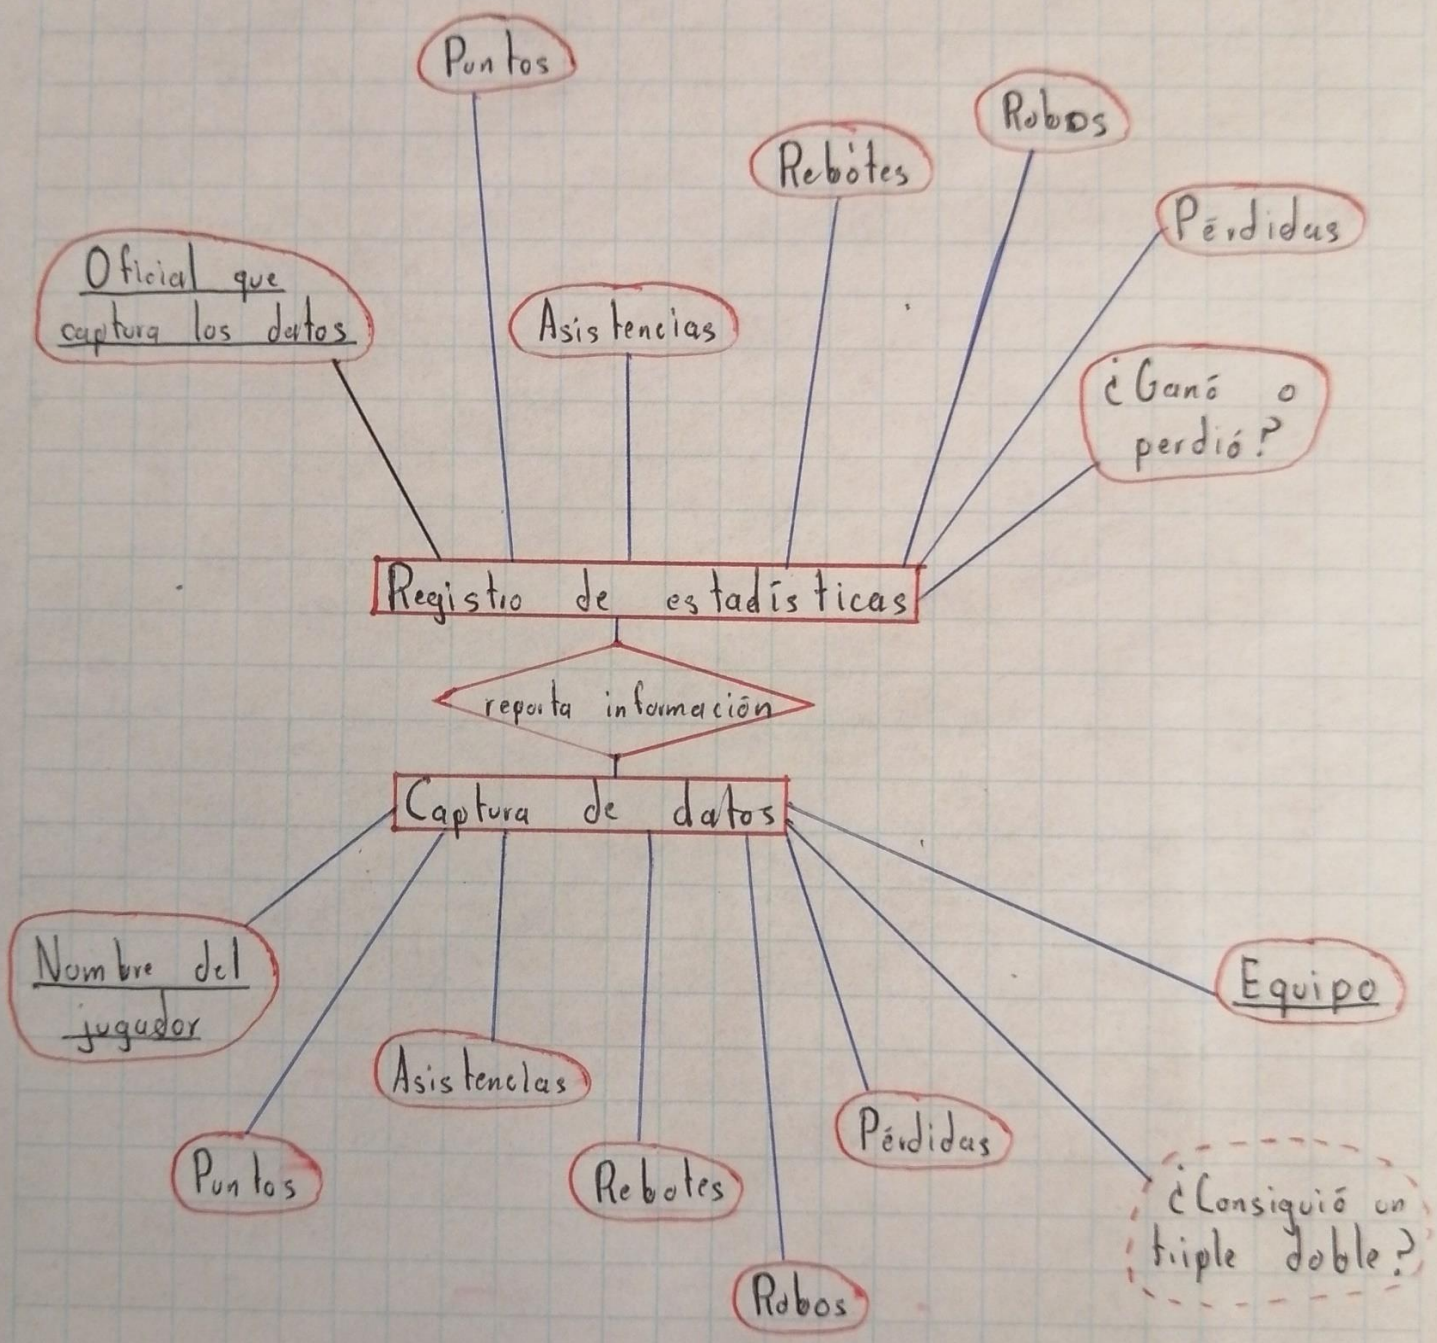 Puntos
Robos
Rebotes
Pérdidas
Oficial que
captura los datos
Asistencias
¿Ganó o
perdió?
Registro de estadísticas
reporta información
Captura de datos
Nombre del
jugador
Equipo
Asistencias
Pérdidas
Puntos
Rebotes
¿Consiguió un
triple doble?
Robos